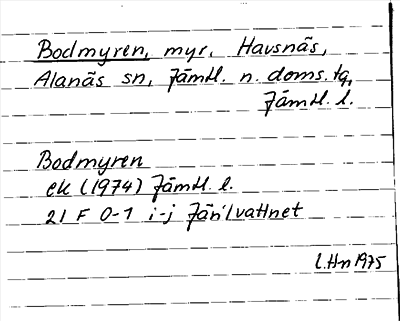 Bodmyren, myr, Havsnäs,
Alanäs sn, Jämtl. n. doms. tg,
Jämtl. l.
Bodmyren
ek (1974) Jämtl. l.
21 F 0-1 i-j Järilvattnet
l.Hn 1975